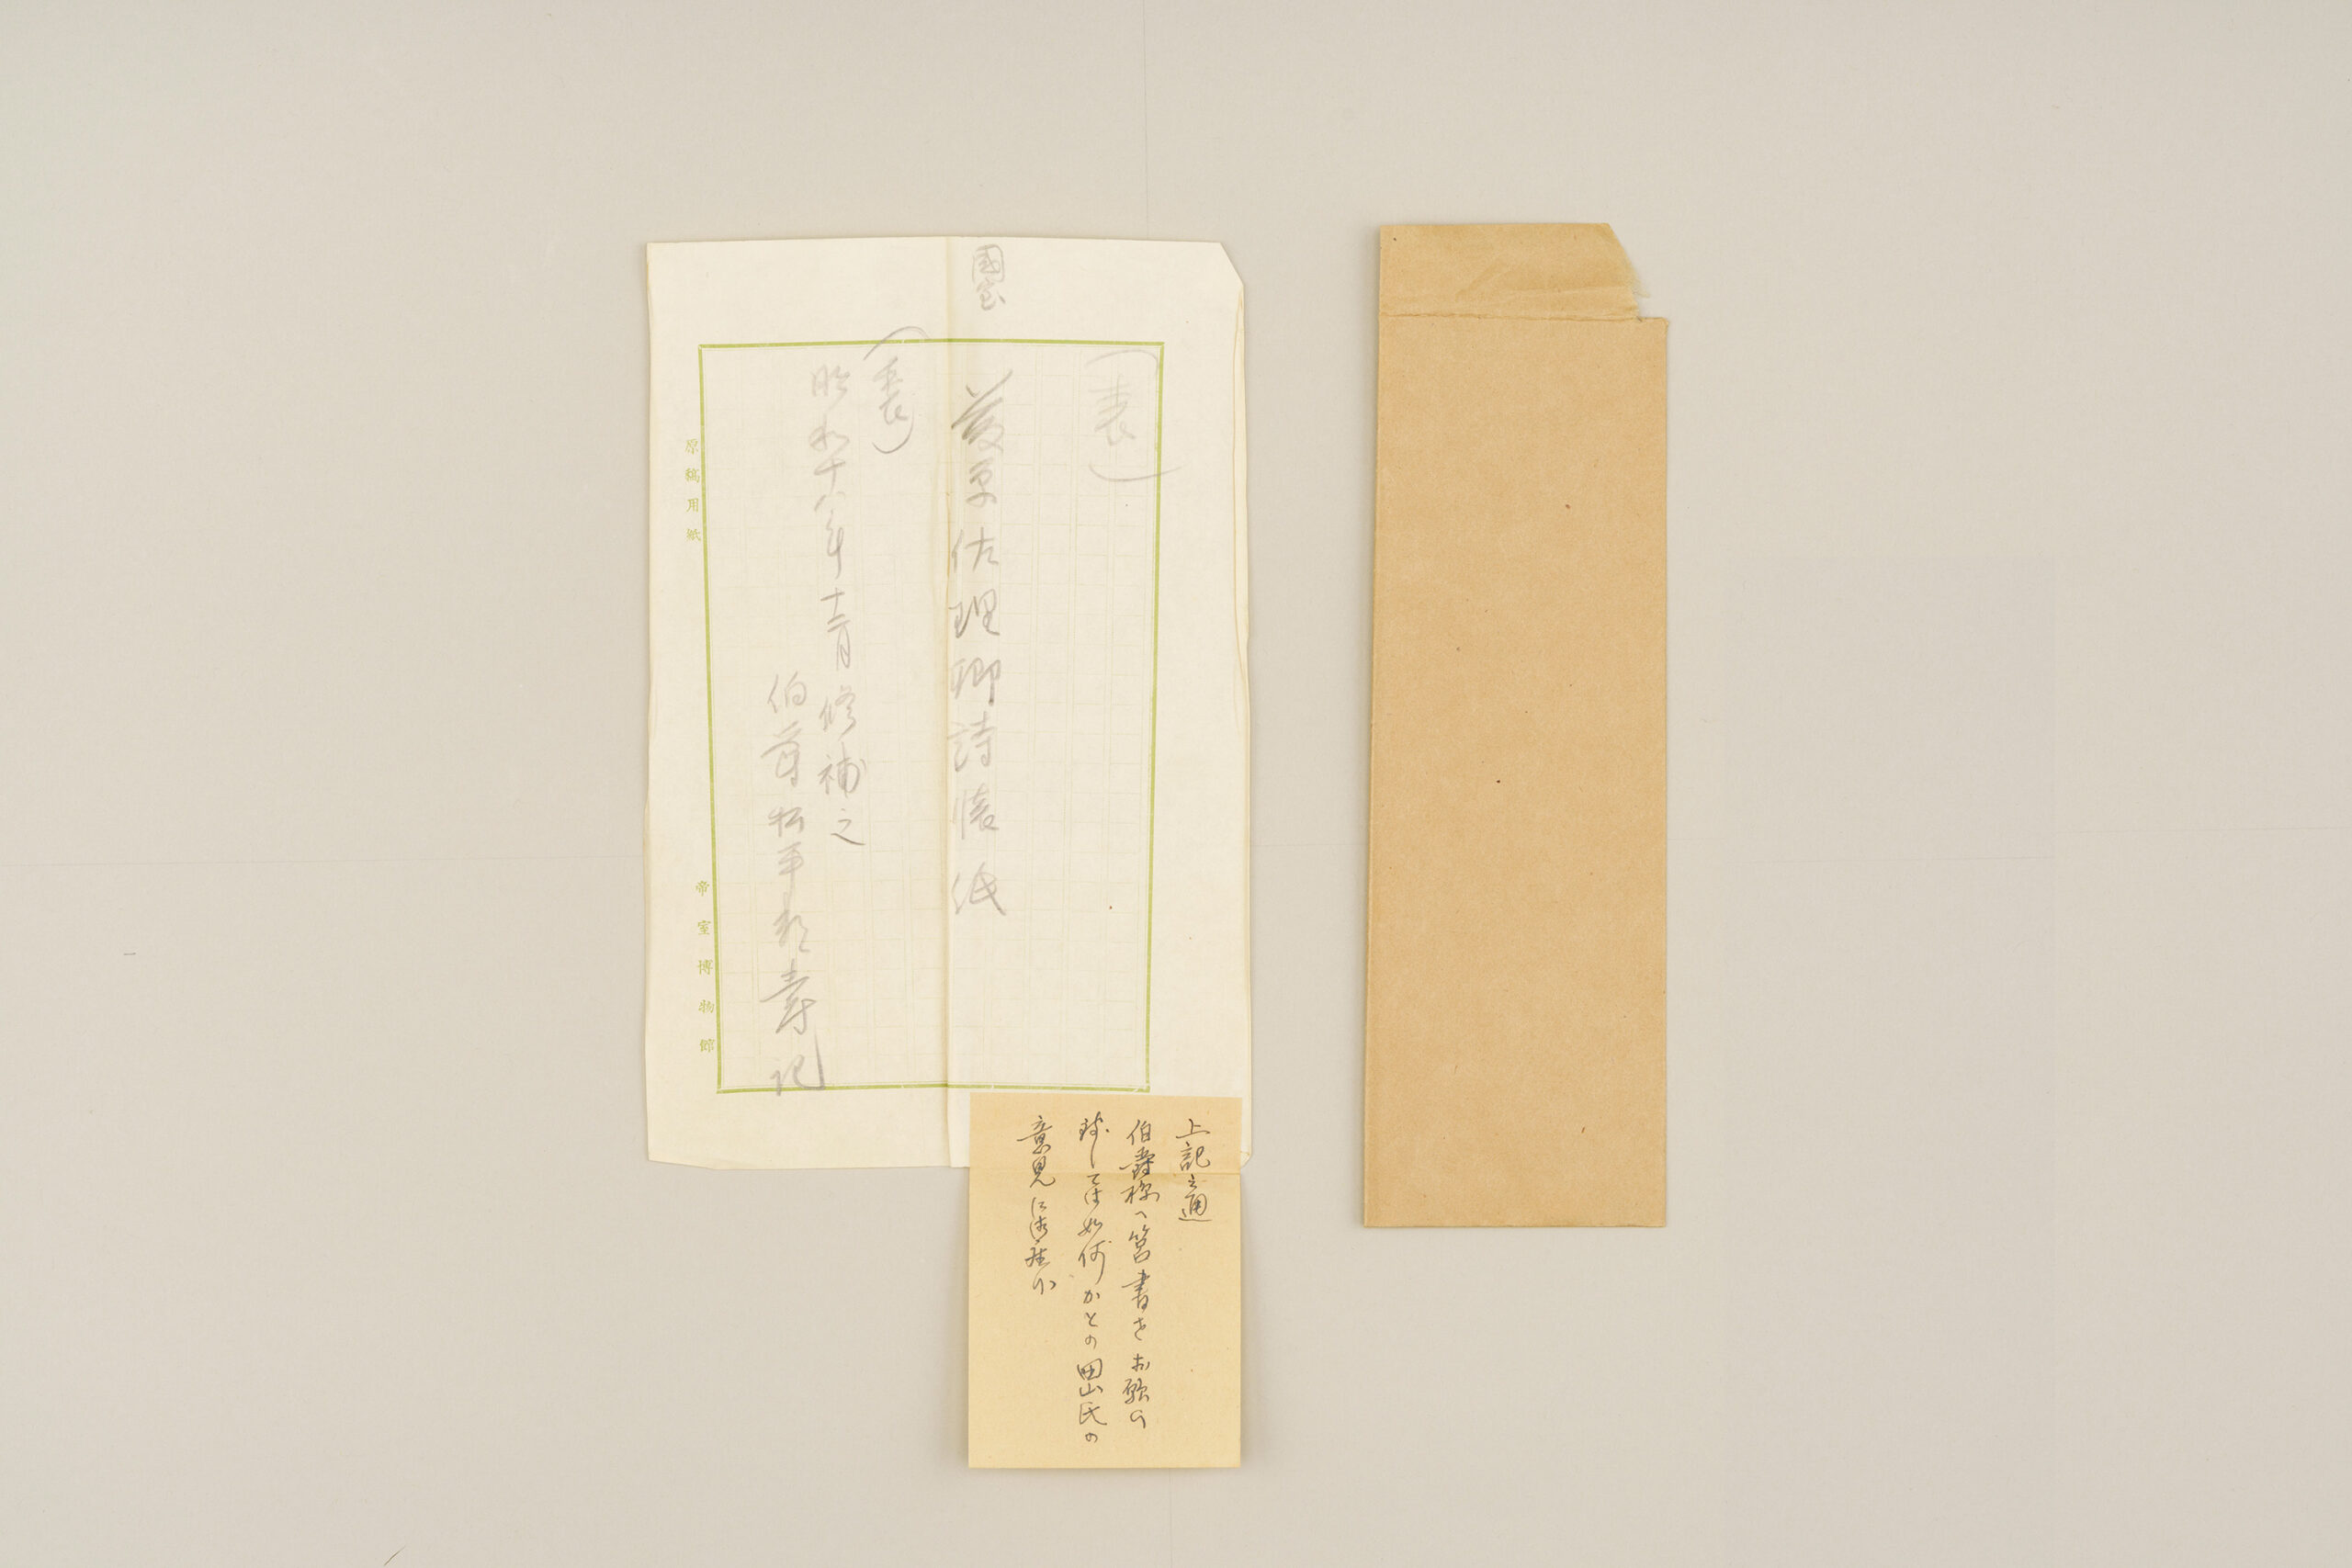 國宝
(表)
藤原佐理卿詩懐紙
(裏)
昭和十八年十二月修補之
伯爵松平頼壽記
原稿用紙
帝室博物館
上記之通
伯爵様へ筥書をお願ひ
致しては如何かとの田山氏の
意見に御座候